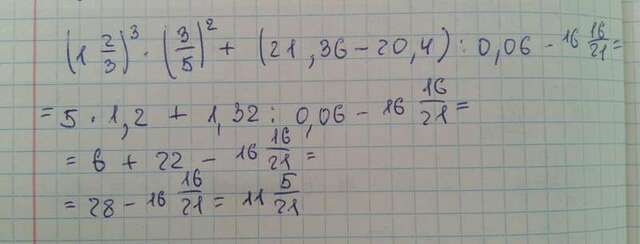 (1 2/3)³ · (3/5)² + (21,36 – 20,4) : 0,06 – 16 16/21 =
= 5 · 1,2 + 1,32 : 0,06 – 16 16/21 =
= 6 + 22 – 16 16/21 =
= 28 – 16 16/21 = 11 5/21